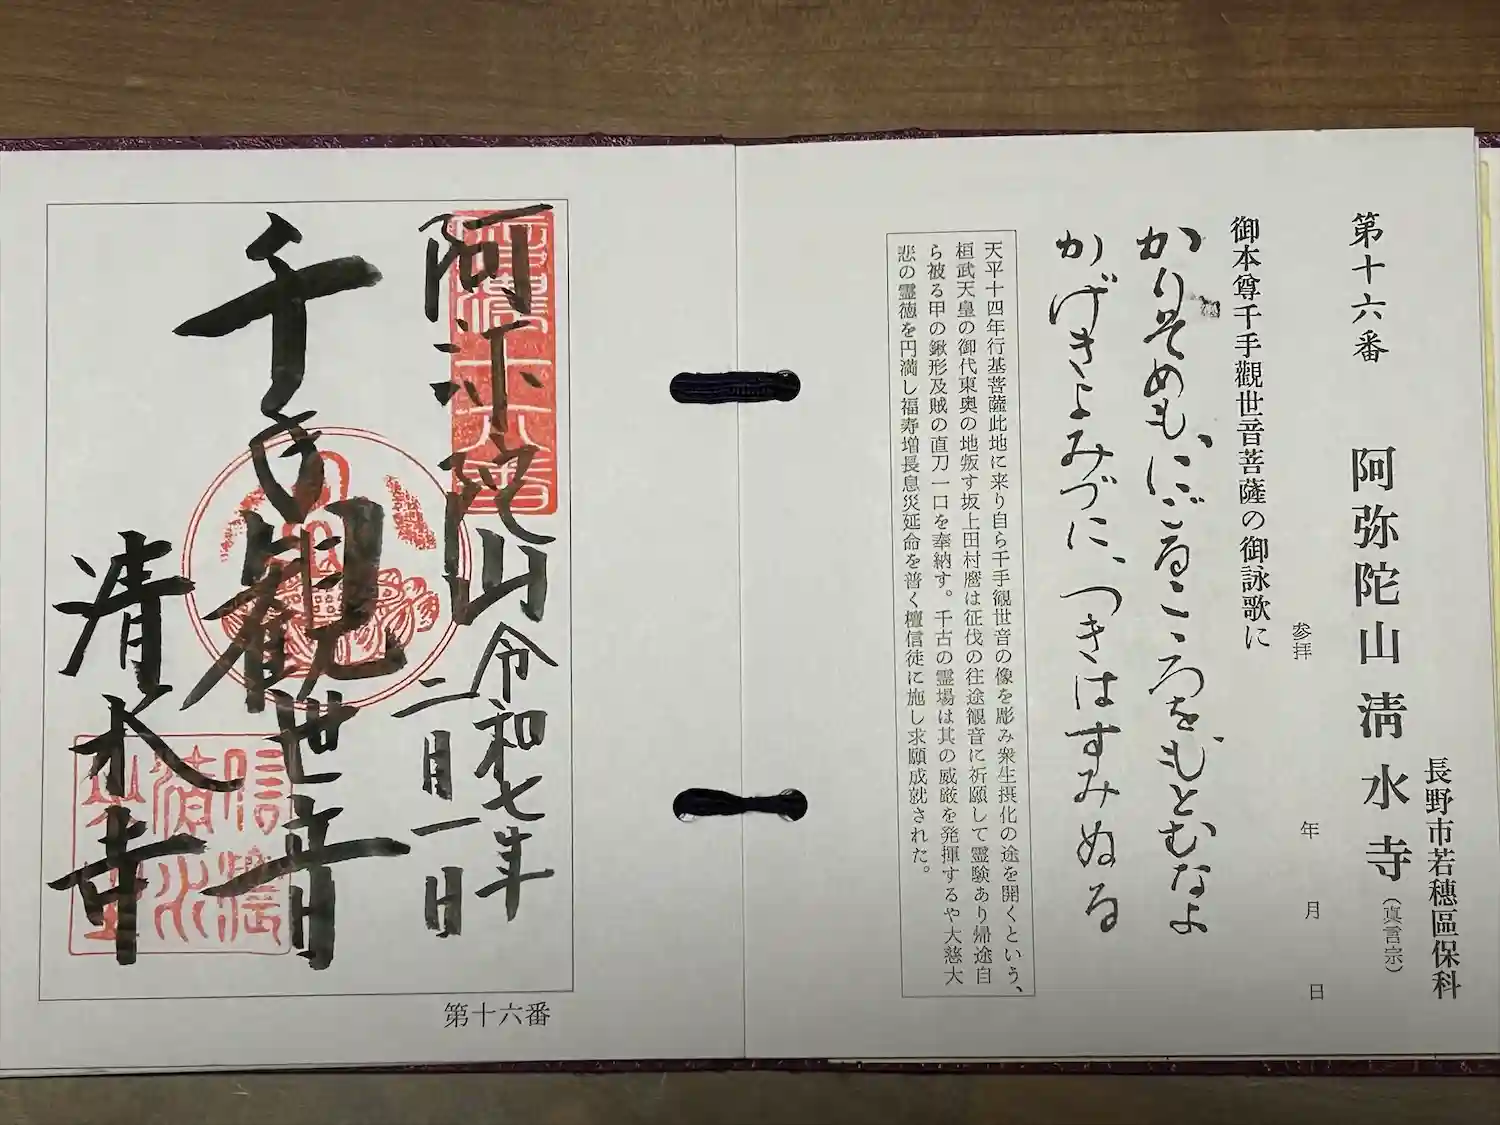 第十六番　阿弥陀山清水寺（真言宗）
長野市若穂區保科
参拝　年　月　日
御本尊千手觀世音菩薩の御詠歌に
かりそめも、にごるこゝろを、もとむなよ
かげきよみづに、つきはすみぬる
天平十四年行基菩薩此地に来り自ら千手観世音の像を彫み衆生摂化の途を開くという、
桓武天皇の御代東奥の地叛す坂上田村麿は征伐の往途観音に祈願して霊験あり帰途自
ら被る甲の鍬形及賊の直刀一口を奉納す。千古の霊場は其の威厳を発揮するや大慈大
悲の霊徳を円満し福寿増長息災延命を普く檀信徒に施し求願成就された。
信濃十六番
阿弥陀山
令和七年
二月一日
千手観世音
清水寺
第十六番